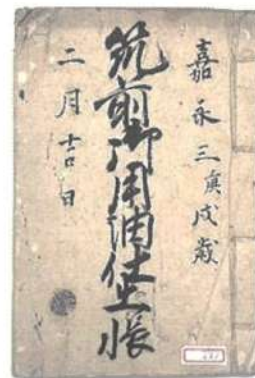 嘉永三庚戌歳
筑前御用油仕上帳
二月吉日